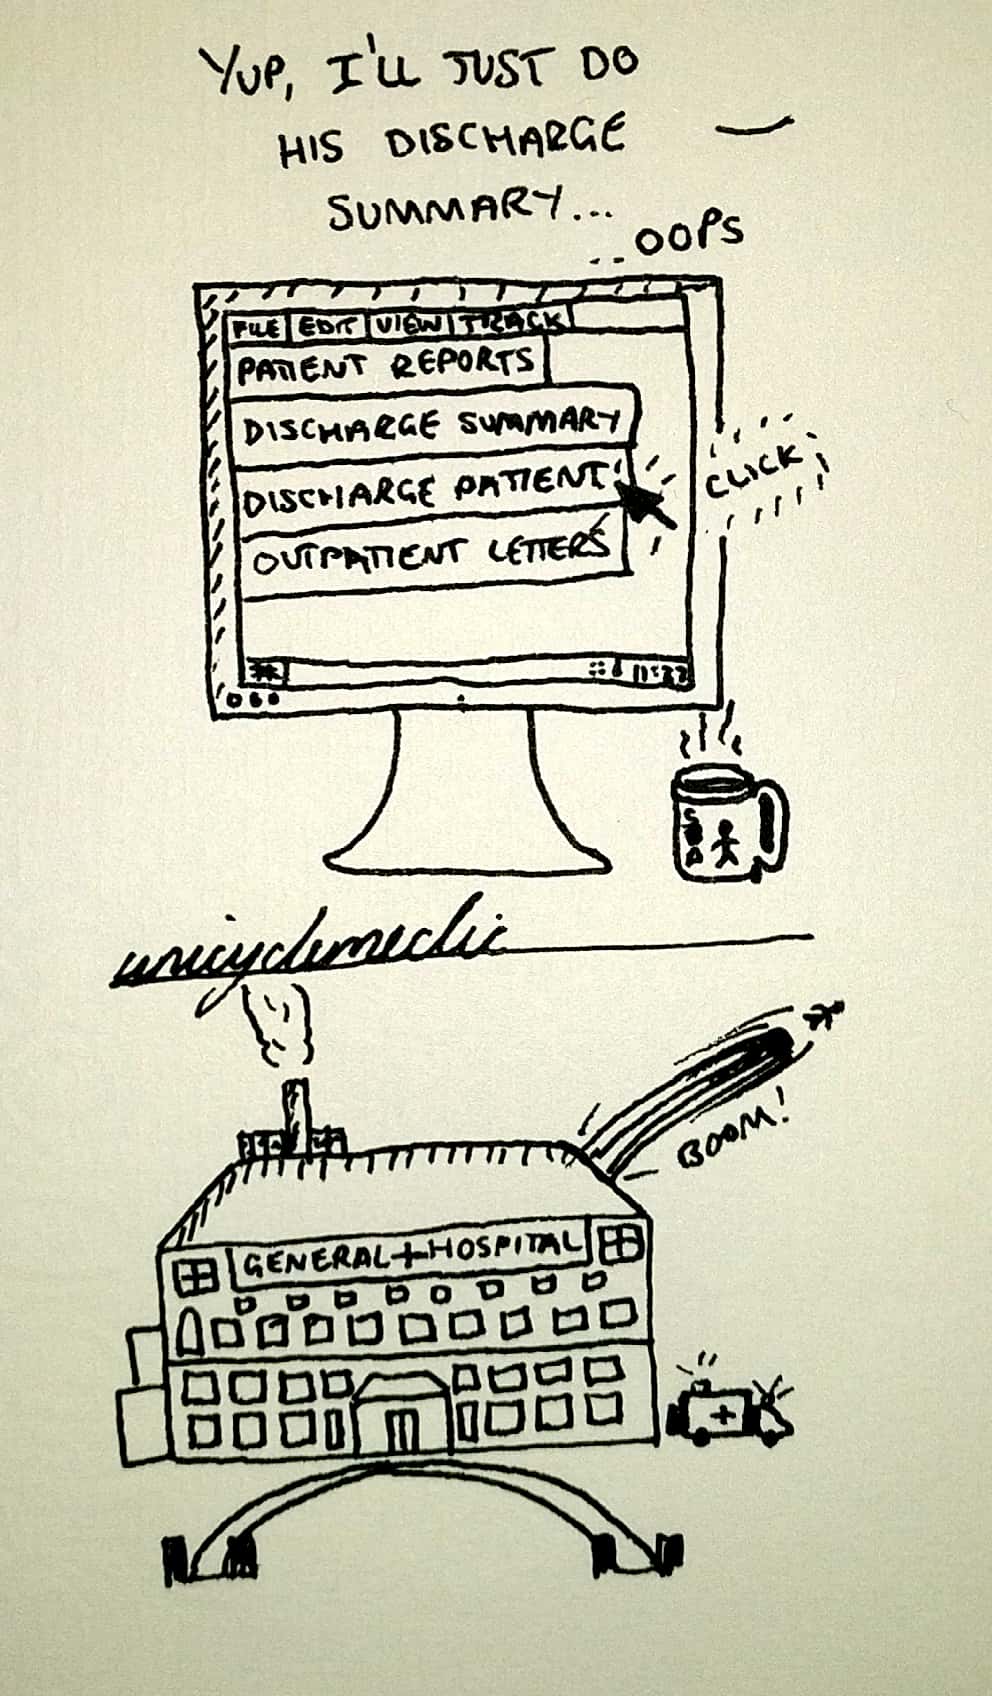 YUP, I'LL JUST DO
HIS DISCHARGE
SUMMARY...
...OOPS
FILE EDIT VIEW TRACK
PATIENT REPORTS
DISCHARGE SUMMARY
DISCHARGE PATIENT
CLICK
OUTPATIENT LETTERS
unicyclemedic
BOOM!
GENERAL + HOSPITAL